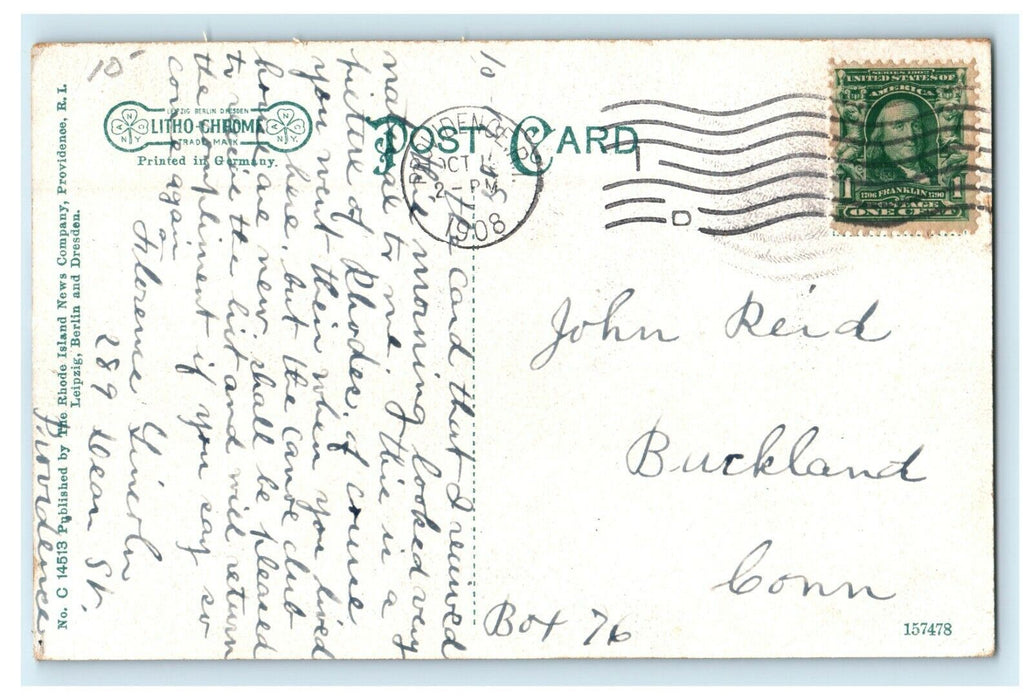 10
LEIPZIG BERLIN DRESDEN
LITHO-CHROME
TRADE MARK
Printed in Germany.
POST CARD
OCT 15
2-PM
1908
SERIES 1902
UNITED STATES OF
AMERICA
1706 FRANKLIN 1790
1 1
POSTAGE
ONE CENT
No. C 14513 Published by The Rhode Island News Company, Providence, R. I.
Leipzig, Berlin and Dresden.
10
The card that I received
this morning looked very
natural to me. This is a
picture of Rhodes, of course
you went their when you lived
here, but the canoe club
house are new, shall be pleased
to receive the list and will return
the compliment if you say so
com again
Florence Lincoln
289 Dean St.
Providence
John Reid
Buckland
Conn
Box 76
157478